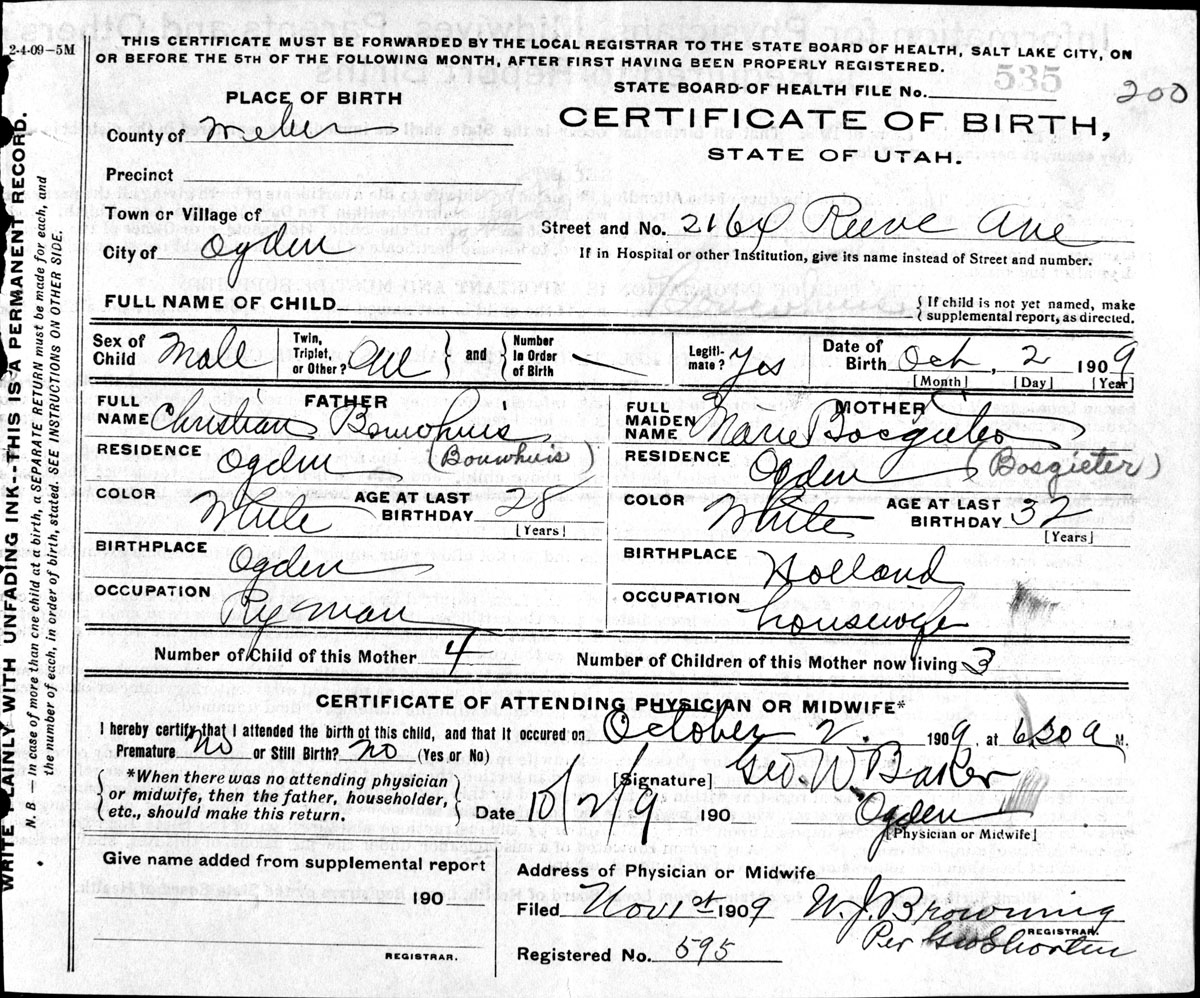 2-4-09-5M
THIS CERTIFICATE MUST BE FORWARDED BY THE LOCAL REGISTRAR TO THE STATE BOARD OF HEALTH, SALT LAKE CITY, ON
OR BEFORE THE 5TH OF THE FOLLOWING MONTH, AFTER FIRST HAVING BEEN PROPERLY REGISTERED.
535
STATE BOARD OF HEALTH FILE No.
200
PLACE OF BIRTH
CERTIFICATE OF BIRTH,
STATE OF UTAH.
County of
Precinct
Town or Village of
Street and No. 2164 Reeve Ave
City of Ogden
If in Hospital or other Institution, give its name instead of Street and number.
FULL NAME OF CHILD Bouwhuis
{ If child is not yet named, make
supplemental report, as directed.
Sex of Child Male Twin, Triplet, or Other? One } and { Number in Order of Birth — Legiti-mate? Yes Date of Birth Oct, 2 1909
[Month] [Day] [Year]
FATHER
FULL NAME Christian Bouwhuis
RESIDENCE Ogden (Bouwhuis)
COLOR White AGE AT LAST BIRTHDAY 28
[Years]
BIRTHPLACE Ogden
OCCUPATION Ry man
MOTHER
FULL MAIDEN NAME Marie
RESIDENCE Ogden (Bosgieter)
COLOR White AGE AT LAST BIRTHDAY 32
[Years]
BIRTHPLACE Holland
OCCUPATION housewife
Number of Child of this Mother 4 Number of Children of this Mother now living 3
CERTIFICATE OF ATTENDING PHYSICIAN OR MIDWIFE*
I hereby certify that I attended the birth of this child, and that it occured on October 2. 1909, at 630 a M.
Premature no or Still Birth? no (Yes or No)
{ *When there was no attending physician
or midwife, then the father, householder,
etc., should make this return. }
[Signature] Geo. W. Baker
Date 10/2/9 190 Ogden
[Physician or Midwife]
Give name added from supplemental report
190
REGISTRAR.
Address of Physician or Midwife
Filed Nov 1st 1909 W. J. Browning
REGISTRAR.
Per
Registered No. 595
WRITE PLAINLY WITH UNFADING INK--THIS IS A PERMANENT RECORD.
N. B. —In case of more than one child at a birth, a SEPARATE RETURN must be made for each, and
the number of each, in order of birth, stated. SEE INSTRUCTIONS ON OTHER SIDE.